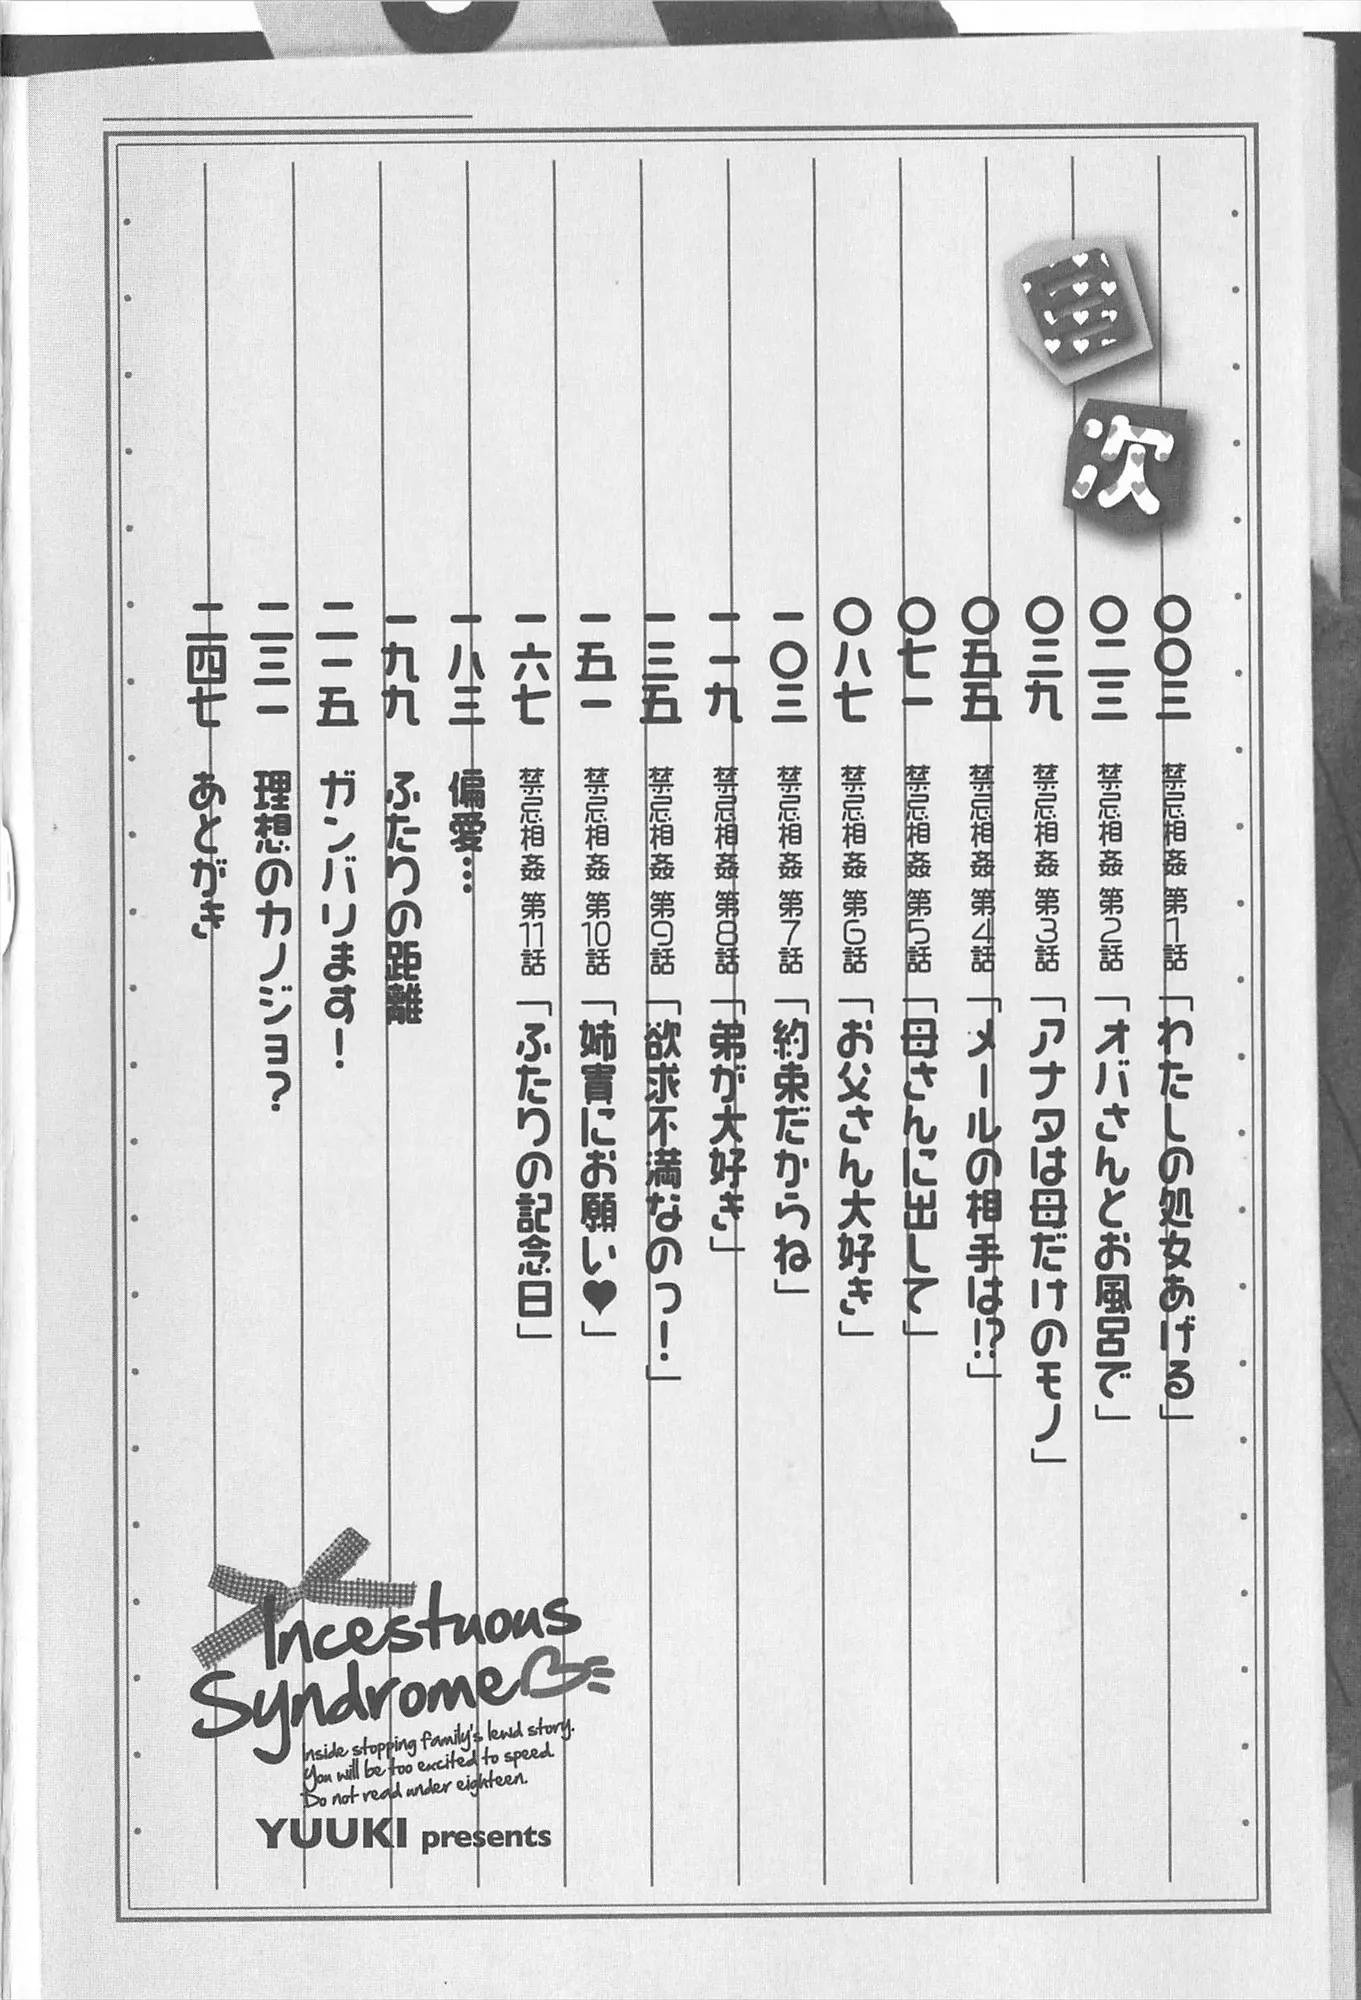 目次
〇〇三 禁忌相姦 第1話「わたしの処女あげる」
〇二三 禁忌相姦 第2話「オバさんとお風呂で」
〇三九 禁忌相姦 第3話「アナタは母だけのモノ」
〇五五 禁忌相姦 第4話「メールの相手は!?」
〇七一 禁忌相姦 第5話「母さんに出して」
〇八七 禁忌相姦 第6話「お父さん大好き」
一〇三 禁忌相姦 第7話「約束だからね」
一一九 禁忌相姦 第8話「弟が大好き」
一三五 禁忌相姦 第9話「欲求不満なのっ!」
一五一 禁忌相姦 第10話「姉貴にお願い♥」
一六七 禁忌相姦 第11話「ふたりの記念日」
一八三 偏愛…
一九九 ふたりの距離
二一五 ガンバリます!
二三一 理想のカノジョ?
二四七 あとがき
Incestuous
Syndrome
Inside stopping family's lewd story.
You will be too excited to speed.
Do not read under eighteen.
YUUKI presents